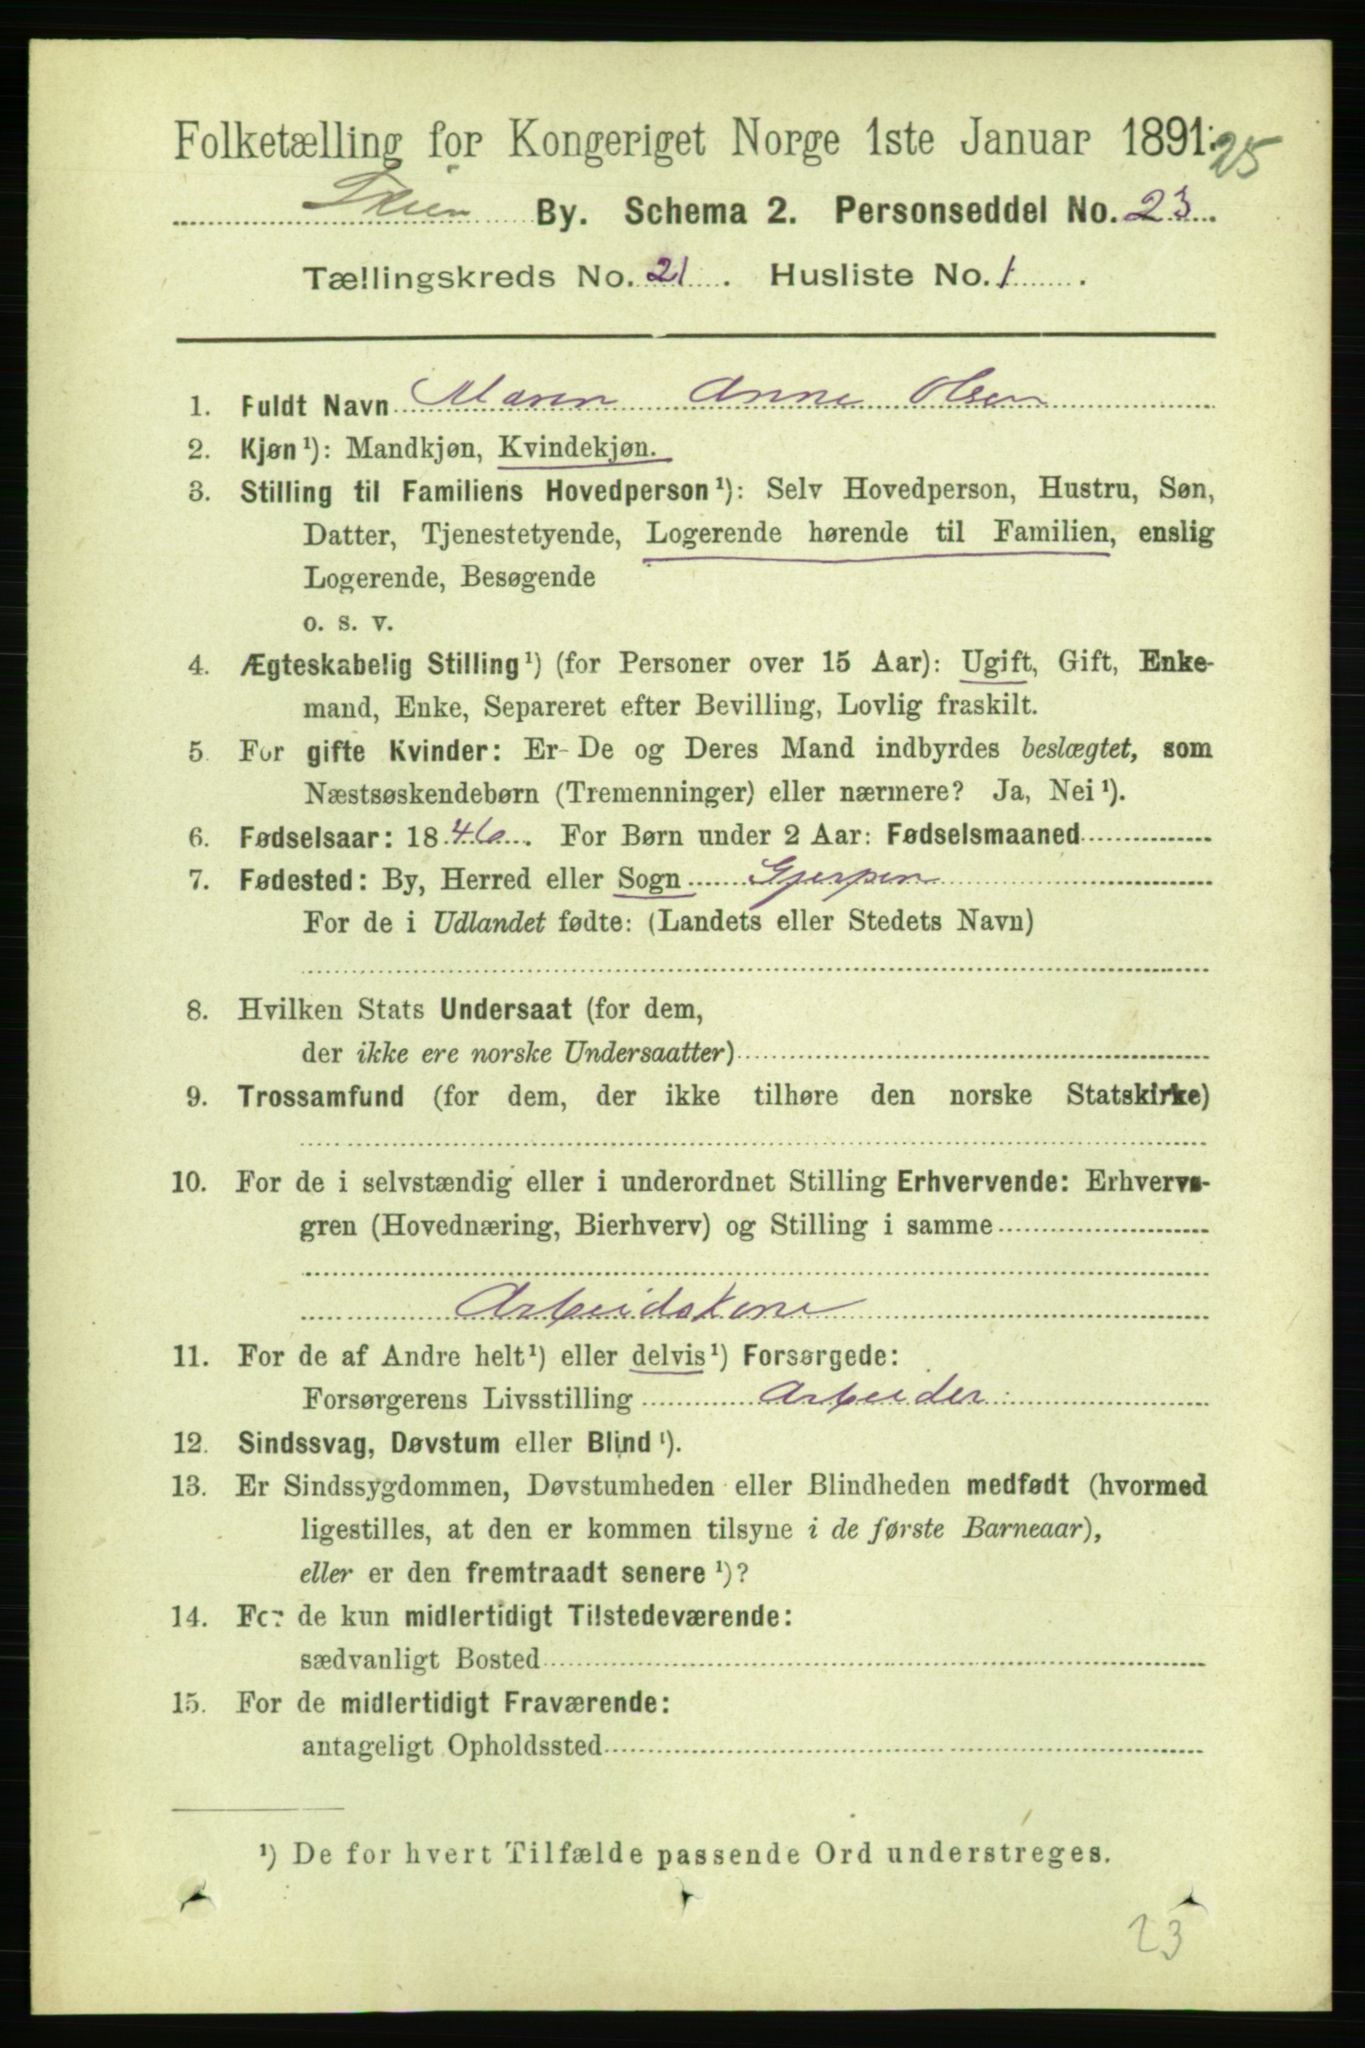 Folketælling for Kongeriget Norge 1ste Januar 1891. 25
Skien By. Schema 2. Personseddel No. 23.
Tællingskreds No. 21. Husliste No. 1.
1. Fuldt Navn Maren Anne Olsen
2. Kjøn¹): Mandkjøn, Kvindekjøn.
3. Stilling til Familiens Hovedperson¹): Selv Hovedperson, Hustru, Søn,
Datter, Tjenestetyende, Logerende hørende til Familien, enslig
Logerende, Besøgende
o. s. v.
4. Ægteskabelig Stilling¹) (for Personer over 15 Aar): Ugift, Gift, Enke-
mand, Enke, Separeret efter Bevilling, Lovlig fraskilt.
5. For gifte Kvinder: Er De og Deres Mand indbyrdes beslægtet, som
Næstsøskendebørn (Tremenninger) eller nærmere? Ja, Nei¹).
6. Fødselsaar: 1846. For Børn under 2 Aar: Fødselsmaaned
7. Fødested: By, Herred eller Sogn Gjerpen
For de i Udlandet fødte: (Landets eller Stedets Navn)
8. Hvilken Stats Undersaat (for dem,
der ikke ere norske Undersaatter)
9. Trossamfund (for dem, der ikke tilhøre den norske Statskirke)
10. For de i selvstændig eller i underordnet Stilling Erhvervende: Erhvervs-
gren (Hovednæring, Bierhverv) og Stilling i samme
Arbeidskone
11. For de af Andre helt¹) eller delvis¹) Forsørgede:
Forsørgerens Livsstilling Arbeider
12. Sindssvag, Døvstum eller Blind¹).
13. Er Sindssygdommen, Døvstumheden eller Blindheden medfødt (hvormed
ligestilles, at den er kommen tilsyne i de første Barneaar),
eller er den fremtraadt senere¹)?
14. For de kun midlertidigt Tilstedeværende:
sædvanligt Bosted
15. For de midlertidigt Fraværende:
antageligt Opholdssted
¹) De for hvert Tilfælde passende Ord understreges.
23